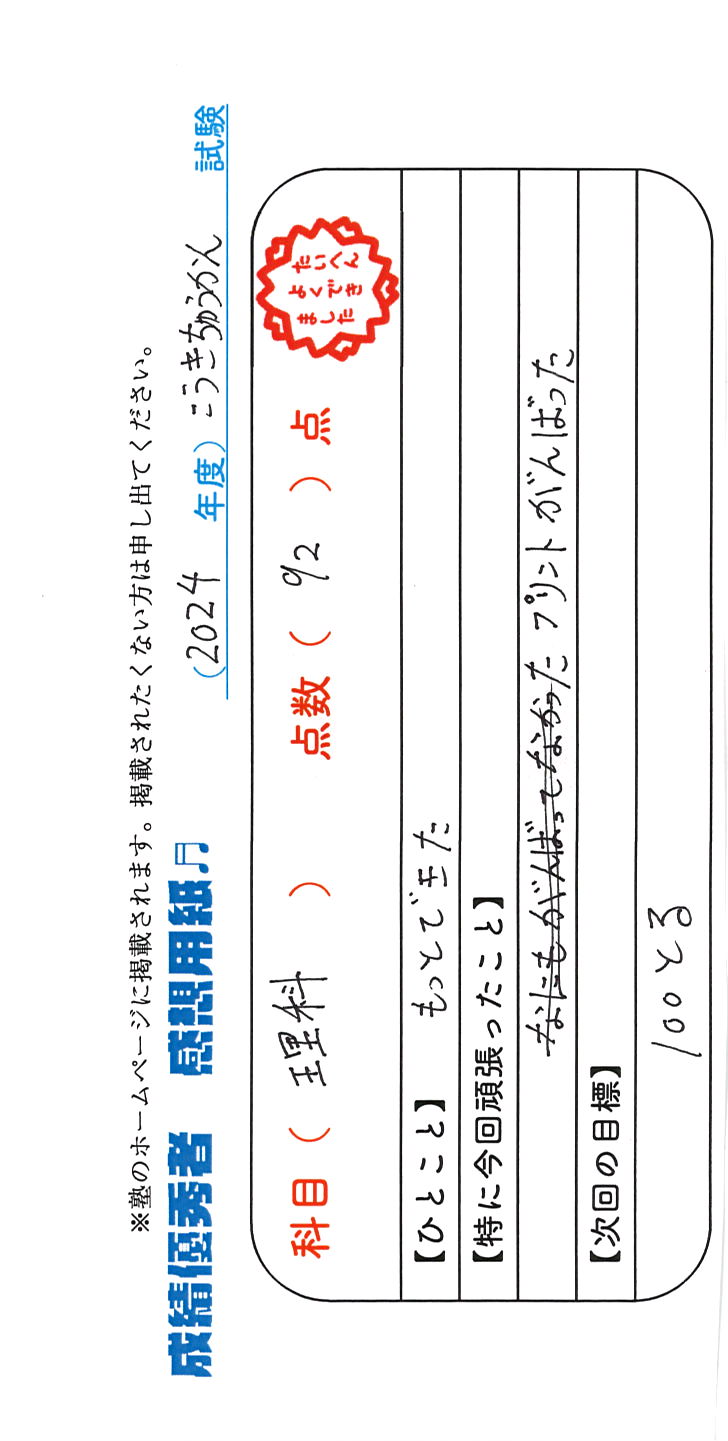 ※塾のホームページに掲載されます。掲載されたくない方は申し出てください。
成績優秀者 感想用紙♬ （2024 年度）こうきちゅうかん 試験
科目（ 理科 ） 点数（ 92 ）点
たいへん
よくでき
ました
【ひとこと】 もっとできた
【特に今回頑張ったこと】
なにもがんばってなかった プリントがんばった
【次回の目標】
100とる